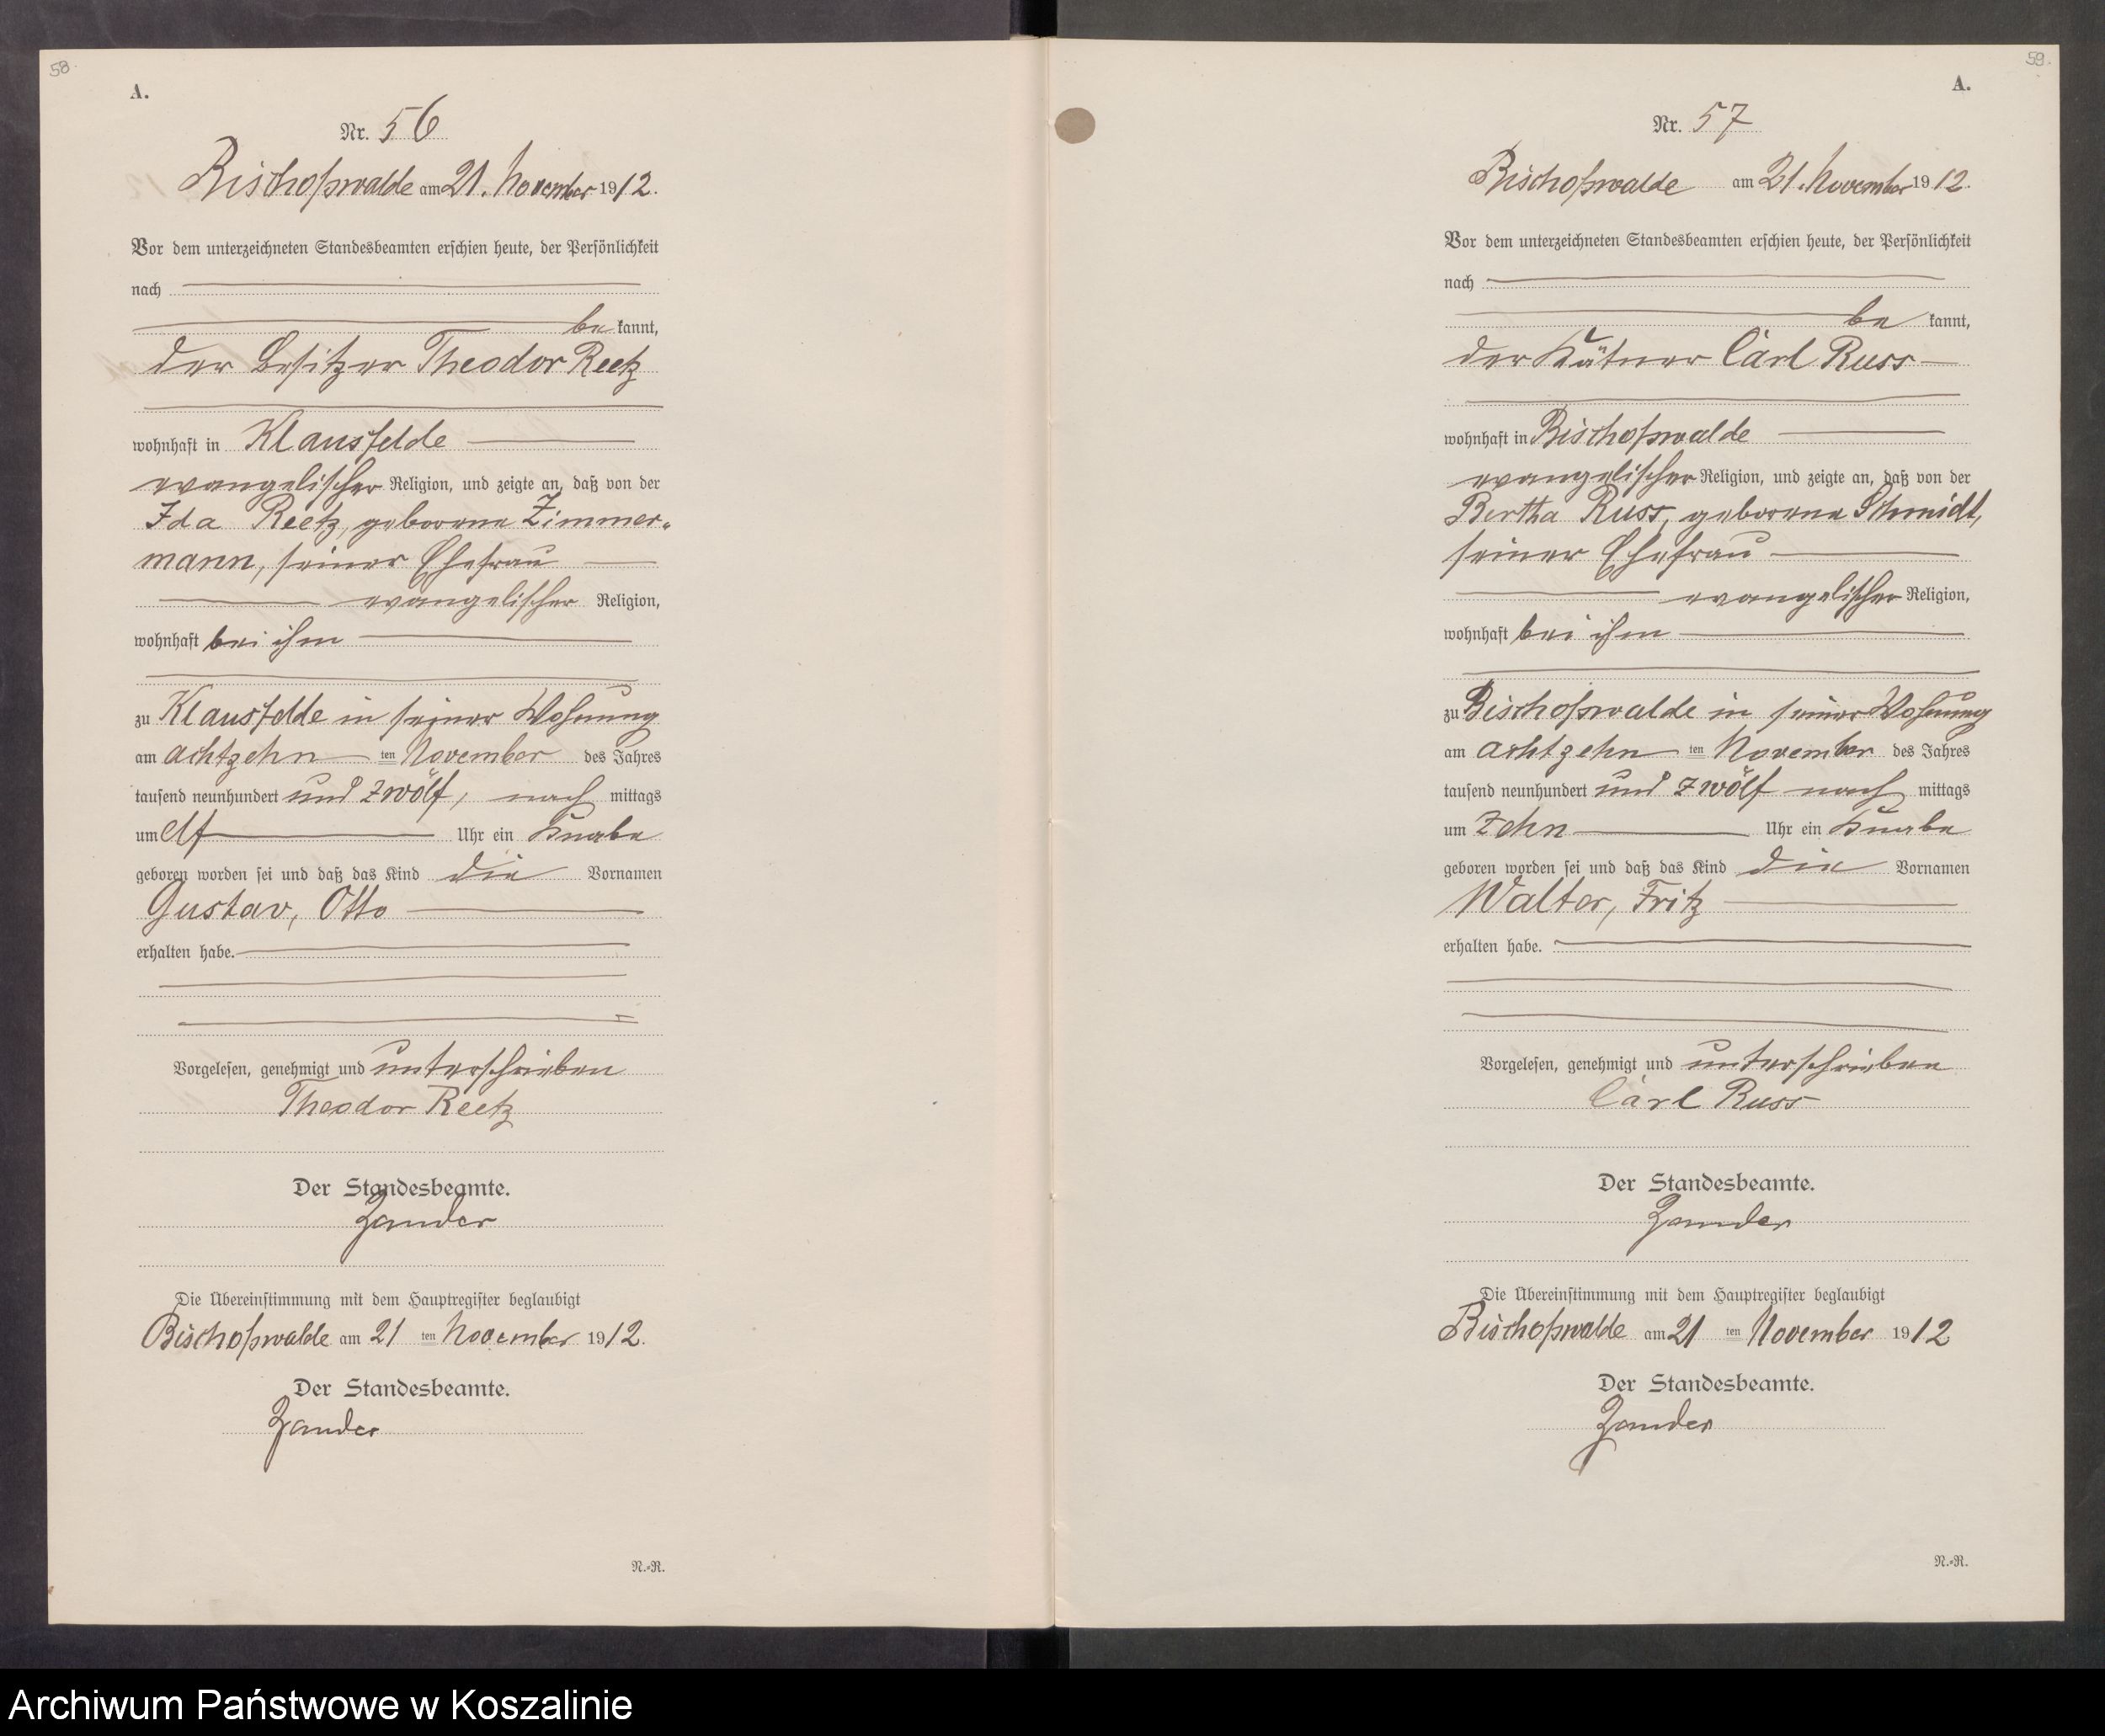 58.
A.
Nr. 56
Bischofswalde am 21. November 1912.
Vor dem unterzeichneten Standesbeamten erschien heute, der Persönlichkeit
nach
be kannt,
der Besitzer Theodor Reetz
wohnhaft in Klausfelde
evangelischer Religion, und zeigte an, daß von der
Ida Reetz, geborene Zimmer-
mann, seiner Ehefrau
evangelischer Religion,
wohnhaft bei ihm
zu Klausfelde in seiner Wohnung
am achtzehn ten November des Jahres
tausend neunhundert und zwölf, nach mittags
um elf Uhr ein Knabe
geboren worden sei und daß das Kind die Vornamen
Gustav, Otto
erhalten habe.
Vorgelesen, genehmigt und unterschrieben
Theodor Reetz
Der Standesbeamte.
Zander
Die Übereinstimmung mit dem Hauptregister beglaubigt
Bischofswalde am 21 ten November 1912.
Der Standesbeamte.
Zander
N.-R.
59.
A.
Nr. 57
Bischofswalde am 21. November 1912.
Vor dem unterzeichneten Standesbeamten erschien heute, der Persönlichkeit
nach
be kannt,
der Kätner Carl Russ
wohnhaft in Bischofswalde
evangelischer Religion, und zeigte an, daß von der
Bertha Russ, geborene Schmidt,
seiner Ehefrau
evangelischer Religion,
wohnhaft bei ihm
zu Bischofswalde in seiner Wohnung
am achtzehn ten November des Jahres
tausend neunhundert und zwölf nach mittags
um zehn Uhr ein Knabe
geboren worden sei und daß das Kind die Vornamen
Walter, Fritz
erhalten habe.
Vorgelesen, genehmigt und unterschrieben
Carl Russ
Der Standesbeamte.
Zander
Die Übereinstimmung mit dem Hauptregister beglaubigt
Bischofswalde am 21 ten November 1912
Der Standesbeamte.
Zander
N.-R.
Archiwum Państwowe w Koszalinie